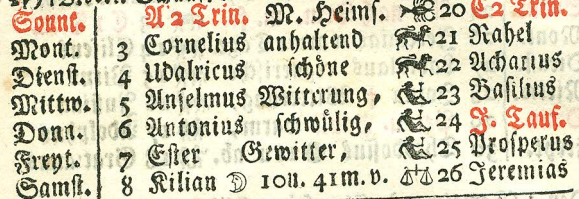 Sonnt. A 2 Trin. M. Heims. 20 C2 Trin.
Mont. 3 Cornelius anhaltend 21 Rahel
Dienst. 4 Udalricus schöne 22 Achatius
Mittw. 5 Anselmus Witterung, 23 Basilius
Donn. 6 Antonius schwülig, 24 J. Tauf.
Freyt. 7 Ester Gewitter, 25 Prosperus
Samst. 8 Kilian ☽ 10u. 41m. v. ♎ 26 Jeremias